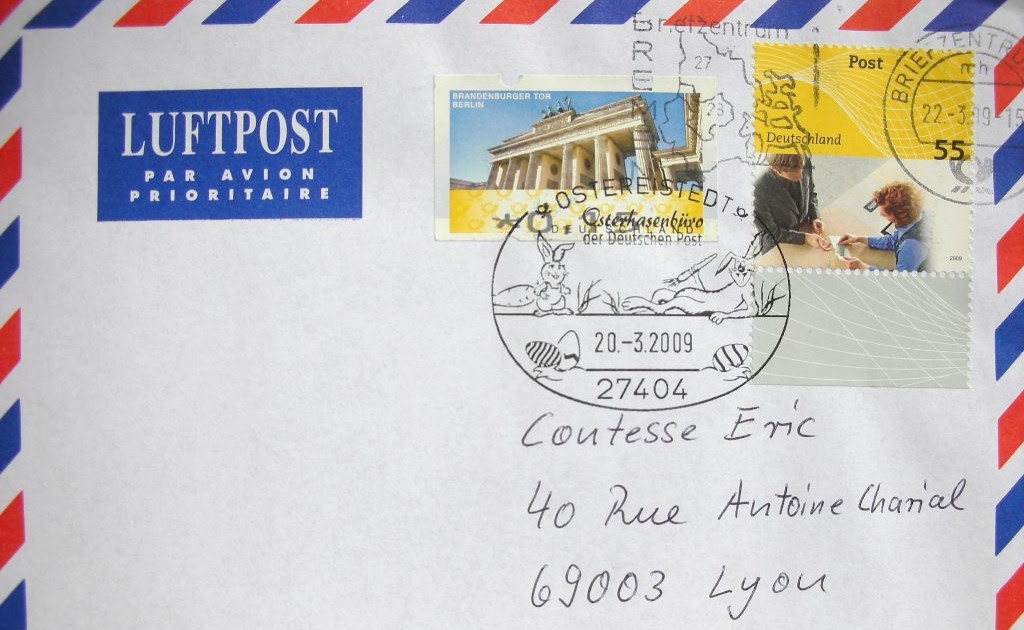 LUFTPOST
PAR AVION
PRIORITAIRE
BRANDENBURGER TOR
BERLIN
DEUTSCHLAND
Briefzentrum
BRE
27
28
Post
Deutschland
55
2009
BRIEFZENTRUM
22.-3.09-15
OSTEREISTEDT
Osterhasenbüro
der Deutschen Post
20.-3.2009
27404
Coutesse Eric
40 Rue Antoine Charial
69003 Lyon